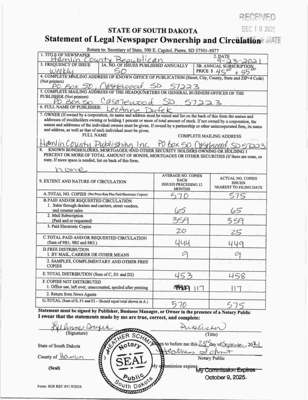 RECEIVED
DEC 10 2021
STATE OF SOUTH DAKOTA
Statement of Legal Newspaper Ownership and Circulation
Return to: Secretary of State, 500 E. Capitol, Pierre, SD 57501-5077
1. TITLE OF NEWSPAPER
2. DATE
Hamlin County Republican
9-23-2021
3. FREQUENCY OF ISSUE
3A. NO. OF ISSUES PUBLISHED ANNUALLY
3B. ANNUAL SUBSCRIPTION
weekly
50
PRICE $ 45 + 55
4. COMPLETE MAILING ADDRESS OF KNOWN OFFICE OF PUBLICATION (Street, City, County, State and ZIP-4 Code)
(Not printers)
PO Box 50 Castlewood SD 57223
5. COMPLETE MAILING ADDRESS OF THE HEADQUARTERS OR GENERAL BUSINESS OFFICES OF THE
PUBLISHER (Not printers)
PO Box 50 Castlewood SD 57223
6. FULL NAME OF PUBLISHER:
LeeAnne Dufek
7. OWNER (If owned by a corporation, its name and address must be stated and on the back of this form the names and
addresses of stockholders owning or holding 1 percent or more of total amount of stock. If not owned by a corporation, the
names and addresses of the individual owners must be given. If owned by a partnership or other unincorporated firm, its name
and address, as well as that of each individual must be given.
FULL NAME
COMPLETE MAILING ADDRESS
Hamlin County Publishing Inc. PO Box 50, Castlewood SD 57223
8. KNOWN BONDHOLDERS, MORTGAGES AND OTHER SECURITY HOLDERS OWNING OR HOLDING 1
PERCENT OR MORE OF TOTAL AMOUNT OF BONDS, MORTGAGES OR OTHER SECURITIES (If there are none, so
state. If more space is needed, list on back of this form.
none
9. EXTENT AND NATURE OF CIRCULATION
AVERAGE NO. COPIES
EACH
ISSUED PRECEDING 12
MONTHS
ACTUAL NO. COPIES
ISSUED
NEAREST TO FILING DATE
A. TOTAL NO. COPIES (Net Press Run Plus Paid Electronic Copies)
570
575
B. PAID AND/OR REQUESTED CIRCULATION
1. Sales through dealers and carriers, street vendors,
and counter sales
65
65
2. Mail Subscription
(Paid and or requested)
359
359
3. Paid Electronic Copies
20
25
C. TOTAL PAID AND/OR REQUESTED CIRCULATION
(Sum of 9B1, 9B2 and 9B3.)
444
449
D. FREE DISTRIBUTION
1. BY MAIL, CARRIER OR OTHER MEANS
9
9
2. SAMPLES, COMPLIMENTARY AND OTHER FREE
COPIES
E. TOTAL DISTRIBUTION (Sum of C, D1 and D2)
453
458
F. COPIES NOT DISTRIBUTED
1. Office use, left over, unaccounted, spoiled after printing
117
117
2. Return from News Agents
G. TOTAL (Sum of E, F1 and F2 – Should equal total shown in A.)
570
575
Statement must be signed by Publisher, Business Manager, or Owner in the presence of a Notary Public
I swear that the statements made by me are true, correct, and complete:
LeeAnne Dufek
Publisher
(Signature)
(Title)
State of South Dakota
County of Hamlin
(Seal)
HEATHER SCHMIT
NOTARY
SEAL
PUBLIC
South Dakota
Notary Public
My Commission Expires
October 9, 2025.